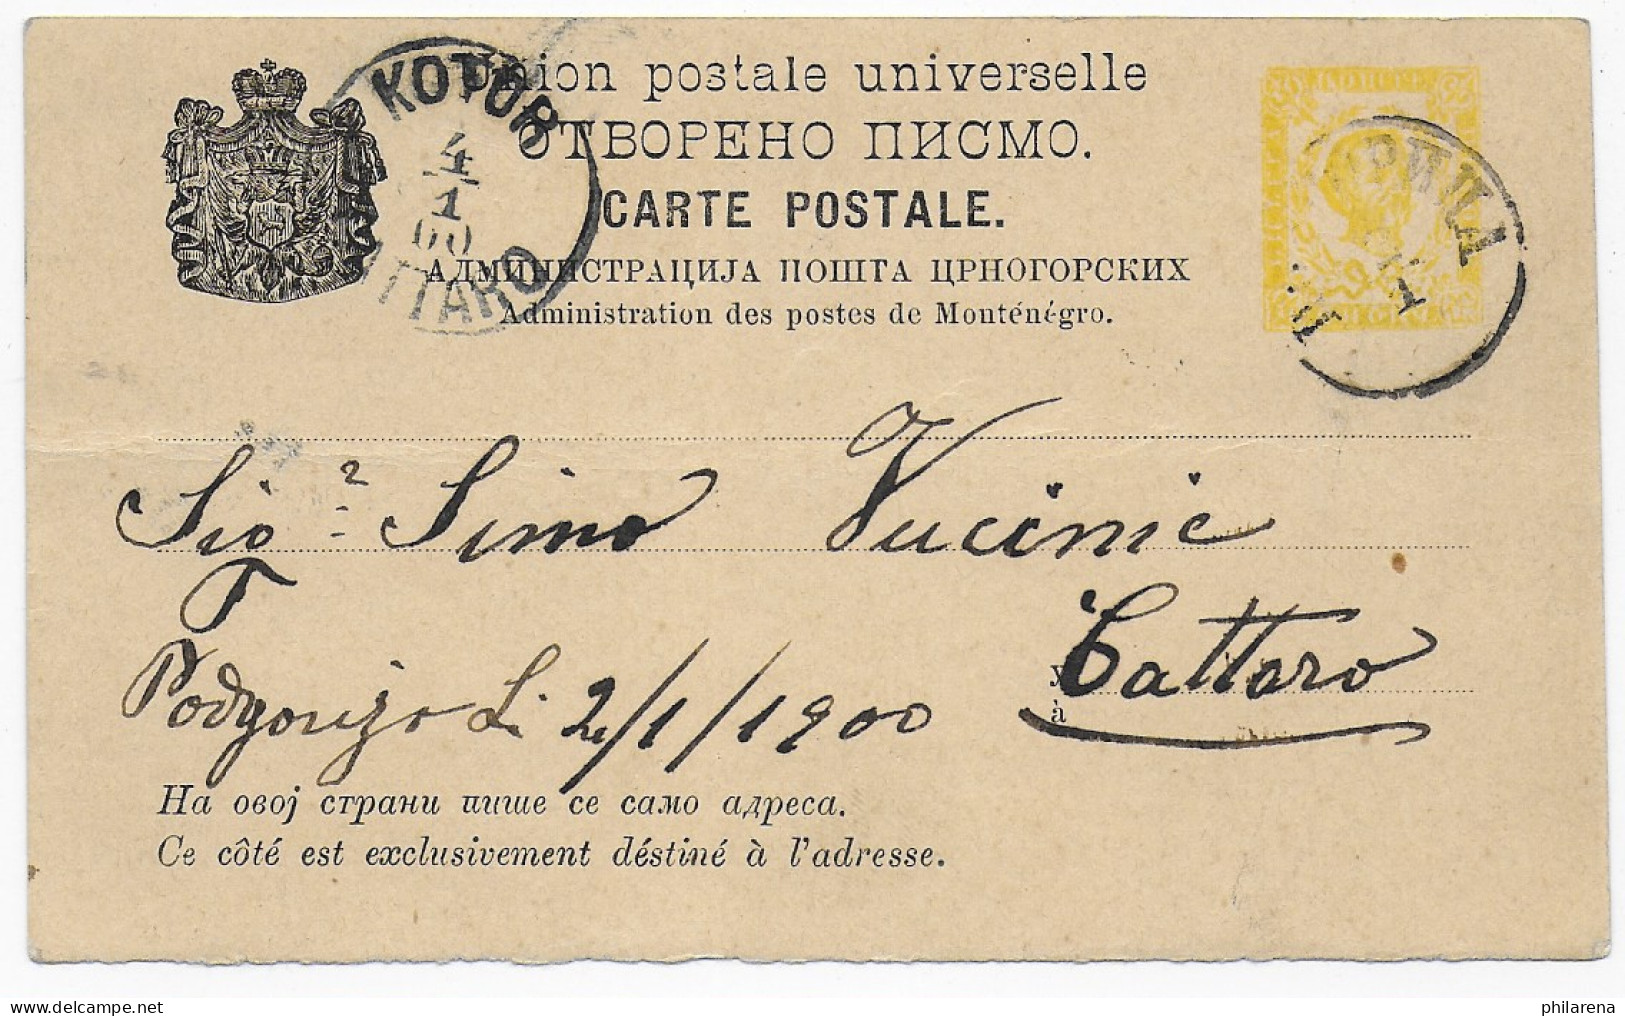 Union postale universelle
ОТВОРЕНО ПИСМО.
CARTE POSTALE.
АДМИНИСТРАЦИЈА ПОШТА ЦРНОГОРСКИХ
Administration des postes de Monténégro.
КОТОР
4/1
00
Sig. Simo Vucinic
у
à
Cattaro
2/1/1900
На овој страни пише се само адреса.
Ce côté est exclusivement déstiné à l'adresse.
philarena